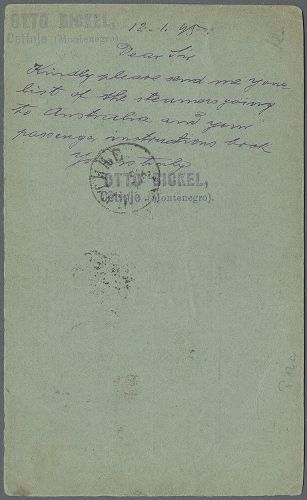 OTTO BICKEL,
Cetinje (Montenegro).
12.1.95
Dear Sir
Kindly please send me your
list of the steamers going
to Australia and your
passenger instructions book
Yours truly
OTTO BICKEL,
Cetinje (Montenegro).